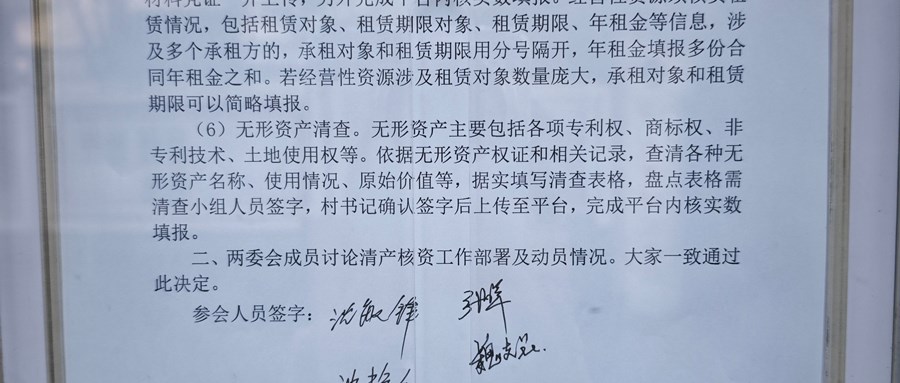 材料凭证一并上传，另外完成平台内核实数填报。经营性资源须核实租
赁情况，包括租赁对象、租赁期限对象、租赁期限、年租金等信息，涉
及多个承租方的，承租对象和租赁期限用分号隔开，年租金填报多份合
同年租金之和。若经营性资源涉及租赁对象数量庞大，承租对象和租赁
期限可以简略填报。
（6）无形资产清查。无形资产主要包括各项专利权、商标权、非
专利技术、土地使用权等。依据无形资产权证和相关记录，查清各种无
形资产名称、使用情况、原始价值等，据实填写清查表格，盘点表格需
清查小组人员签字，村书记确认签字后上传至平台，完成平台内核实数
填报。
二、两委会成员讨论清产核资工作部署及动员情况。大家一致通过
此决定。
参会人员签字：沈敏锋